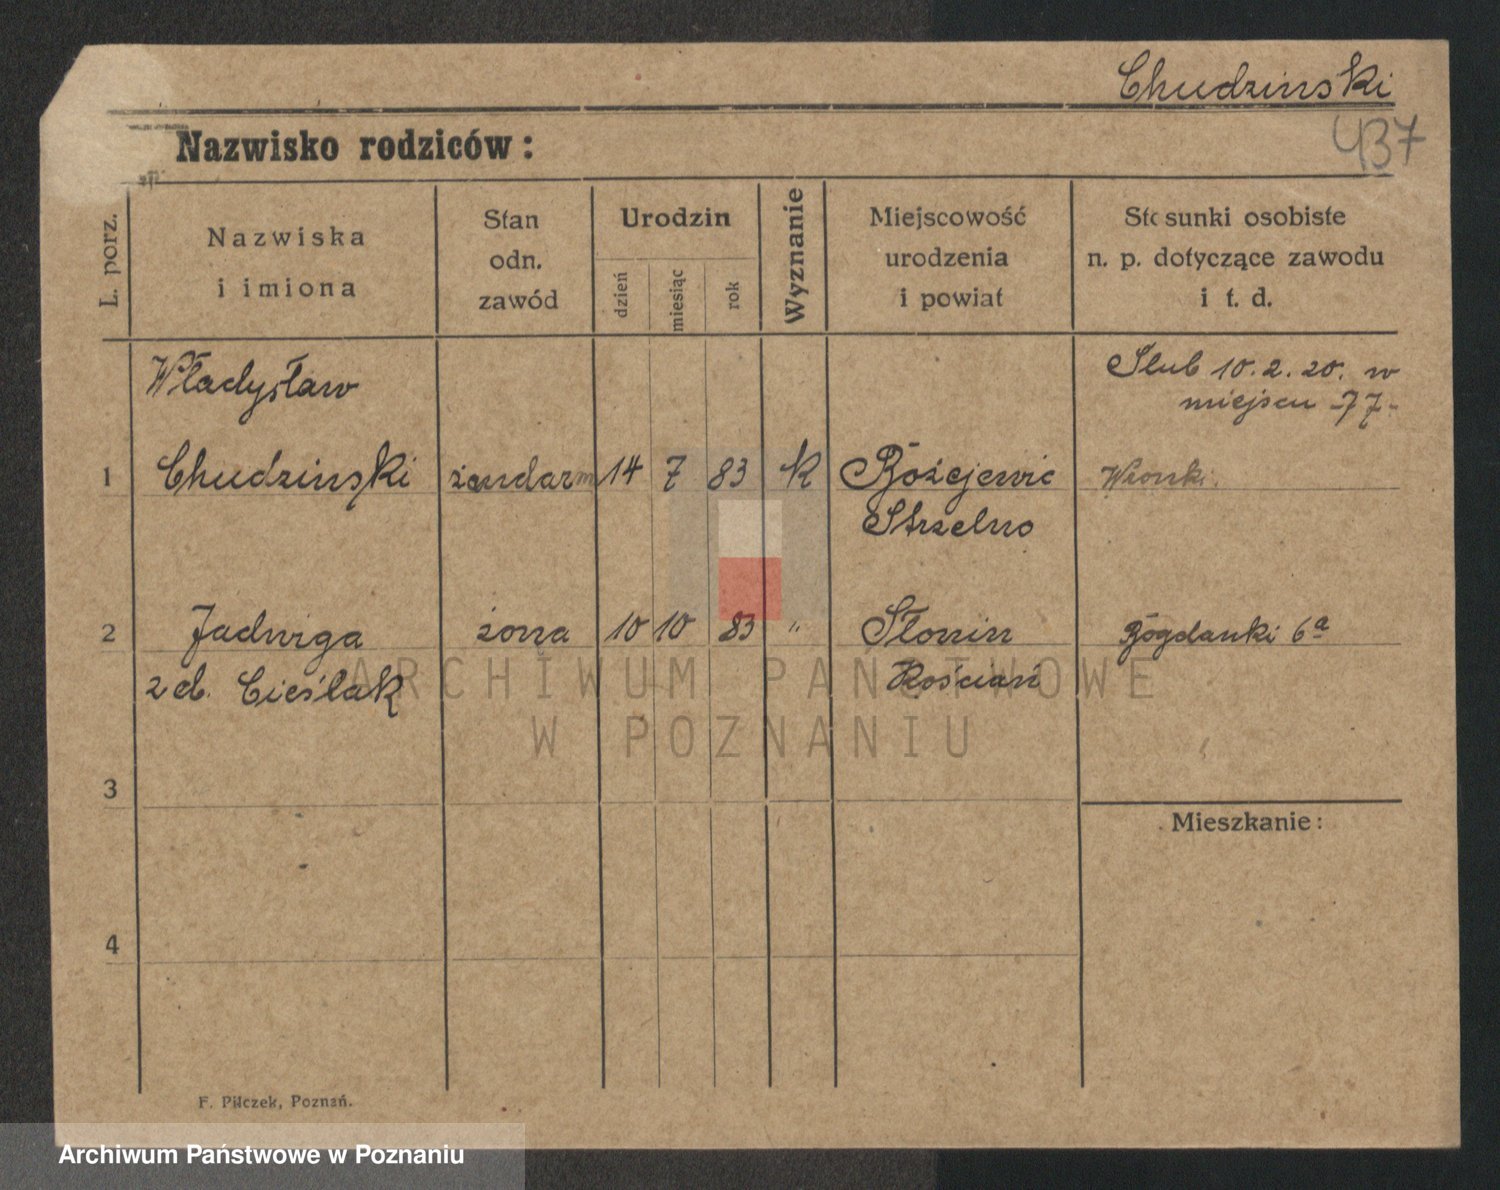 Chudzinski
437
Nazwisko rodziców:
L. porz.
Nazwiska
i imiona
Stan
odn.
zawód
Urodzin
dzień
miesiąc
rok
Wyznanie
Miejscowość
urodzenia
i powiat
Stosunki osobiste
n. p. dotyczące zawodu
i t. d.
Władysław
Ślub 10.2.20. w
miejscu -77-
1 Chudzinski żandarm 14 7 83 K Bożejewic Wronki.
Strzelno
2 Jadwiga żona 10 10 83 " Słonin Bogdanki 6a
z d. Cieślak Kościan
ARCHIWUM PAŃSTWOWE
W POZNANIU
3
Mieszkanie:
4
F. Pilczek, Poznań.
Archiwum Państwowe w Poznaniu